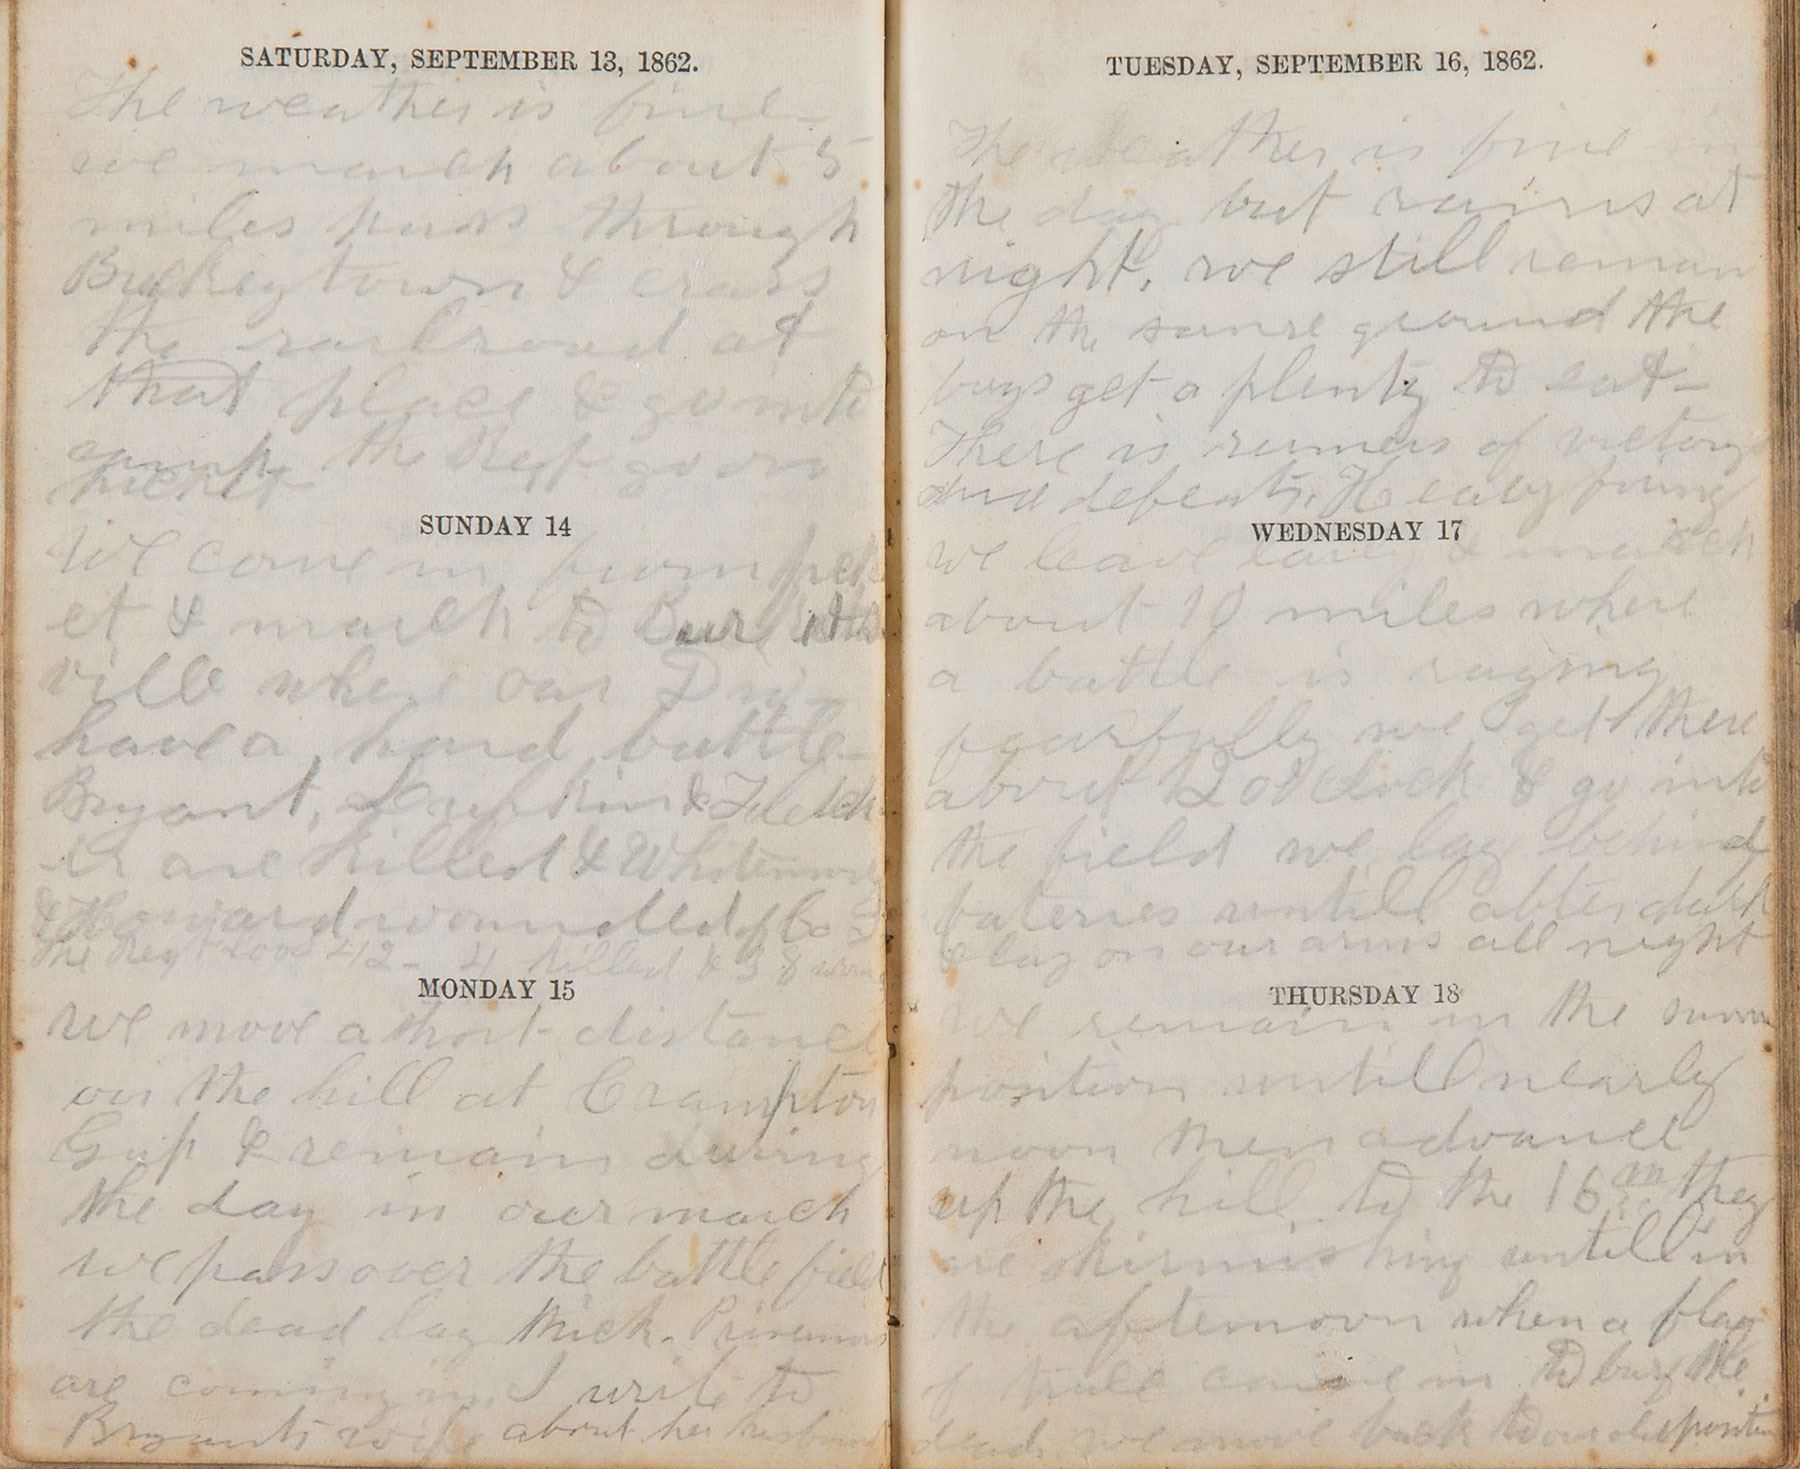 SATURDAY, SEPTEMBER 13, 1862.
The weather is fine
we march about 5
miles pass through
Buckeytown & cross
the railroad at
that place & go into
camp the Regt go on
picket
SUNDAY 14
We come in from pick
et & march to Burkitts
ville where our Div.
have a hard battle
Bryant, & Fletch
er are killed & Whitemore
& Howard wounded of Co
The Regt loss 42 - 4 killed & 38 woun
MONDAY 15
We move a short distance
on the hill at Crampton
Gap & remain during
the day in our march
we pass over the battle field
the dead lay thick. Prisoners
are coming in. I write to
Bryants wife about her husband
TUESDAY, SEPTEMBER 16, 1862.
The weather is fine in
the day but rains at
night, we still remain
on the same ground the
boys get a plenty to eat-
There is rumers of victory
and defeats, Heavy firing
WEDNESDAY 17
we leave early & march
about 10 miles where
a battle is raging
fearfully we get there
about 12 oclock & go into
the field we lay behind
bateries untill after dark
& lay on our arms all night
THURSDAY 18
We remain in the same
position untill nearly
noon then advance
up the hill to the 16 they
are skirmishing untill in
the afternoon when a flag
of truce came in to bury the
dead. we move back to our old position